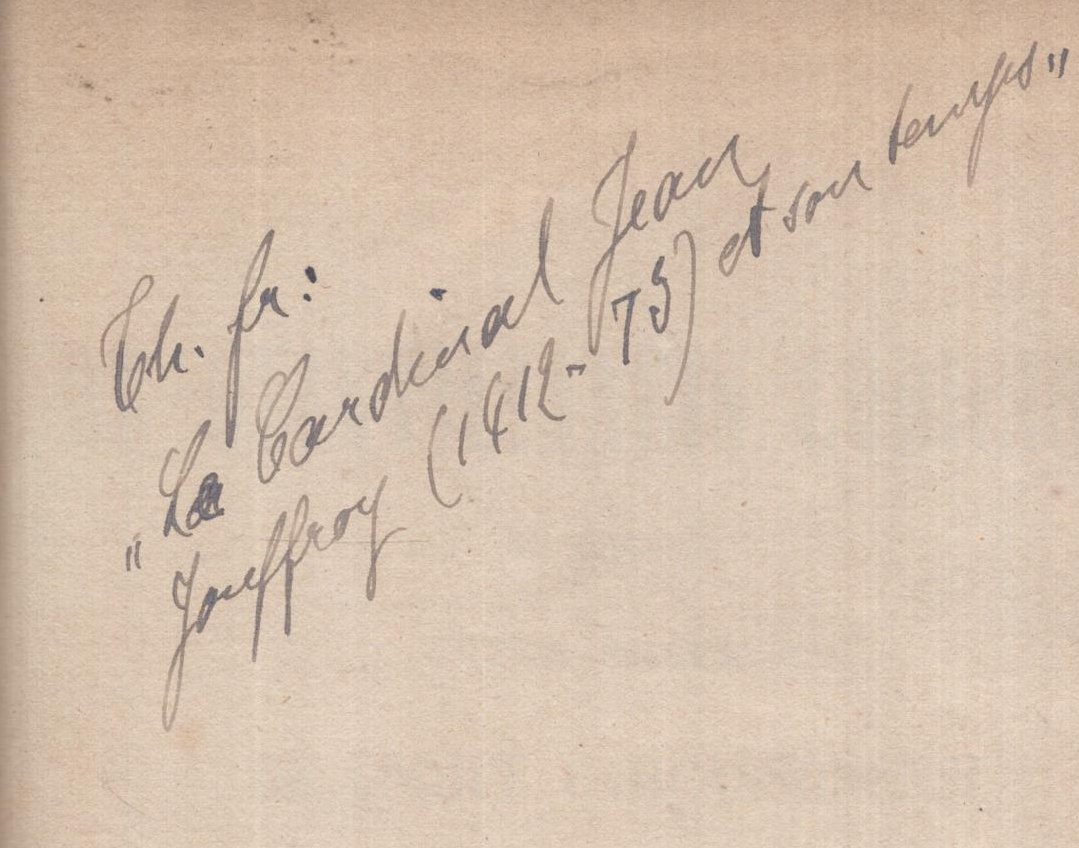 Th. fr:
„Le Cardinal Jean
Jouffroy (1412-73) et son temps"